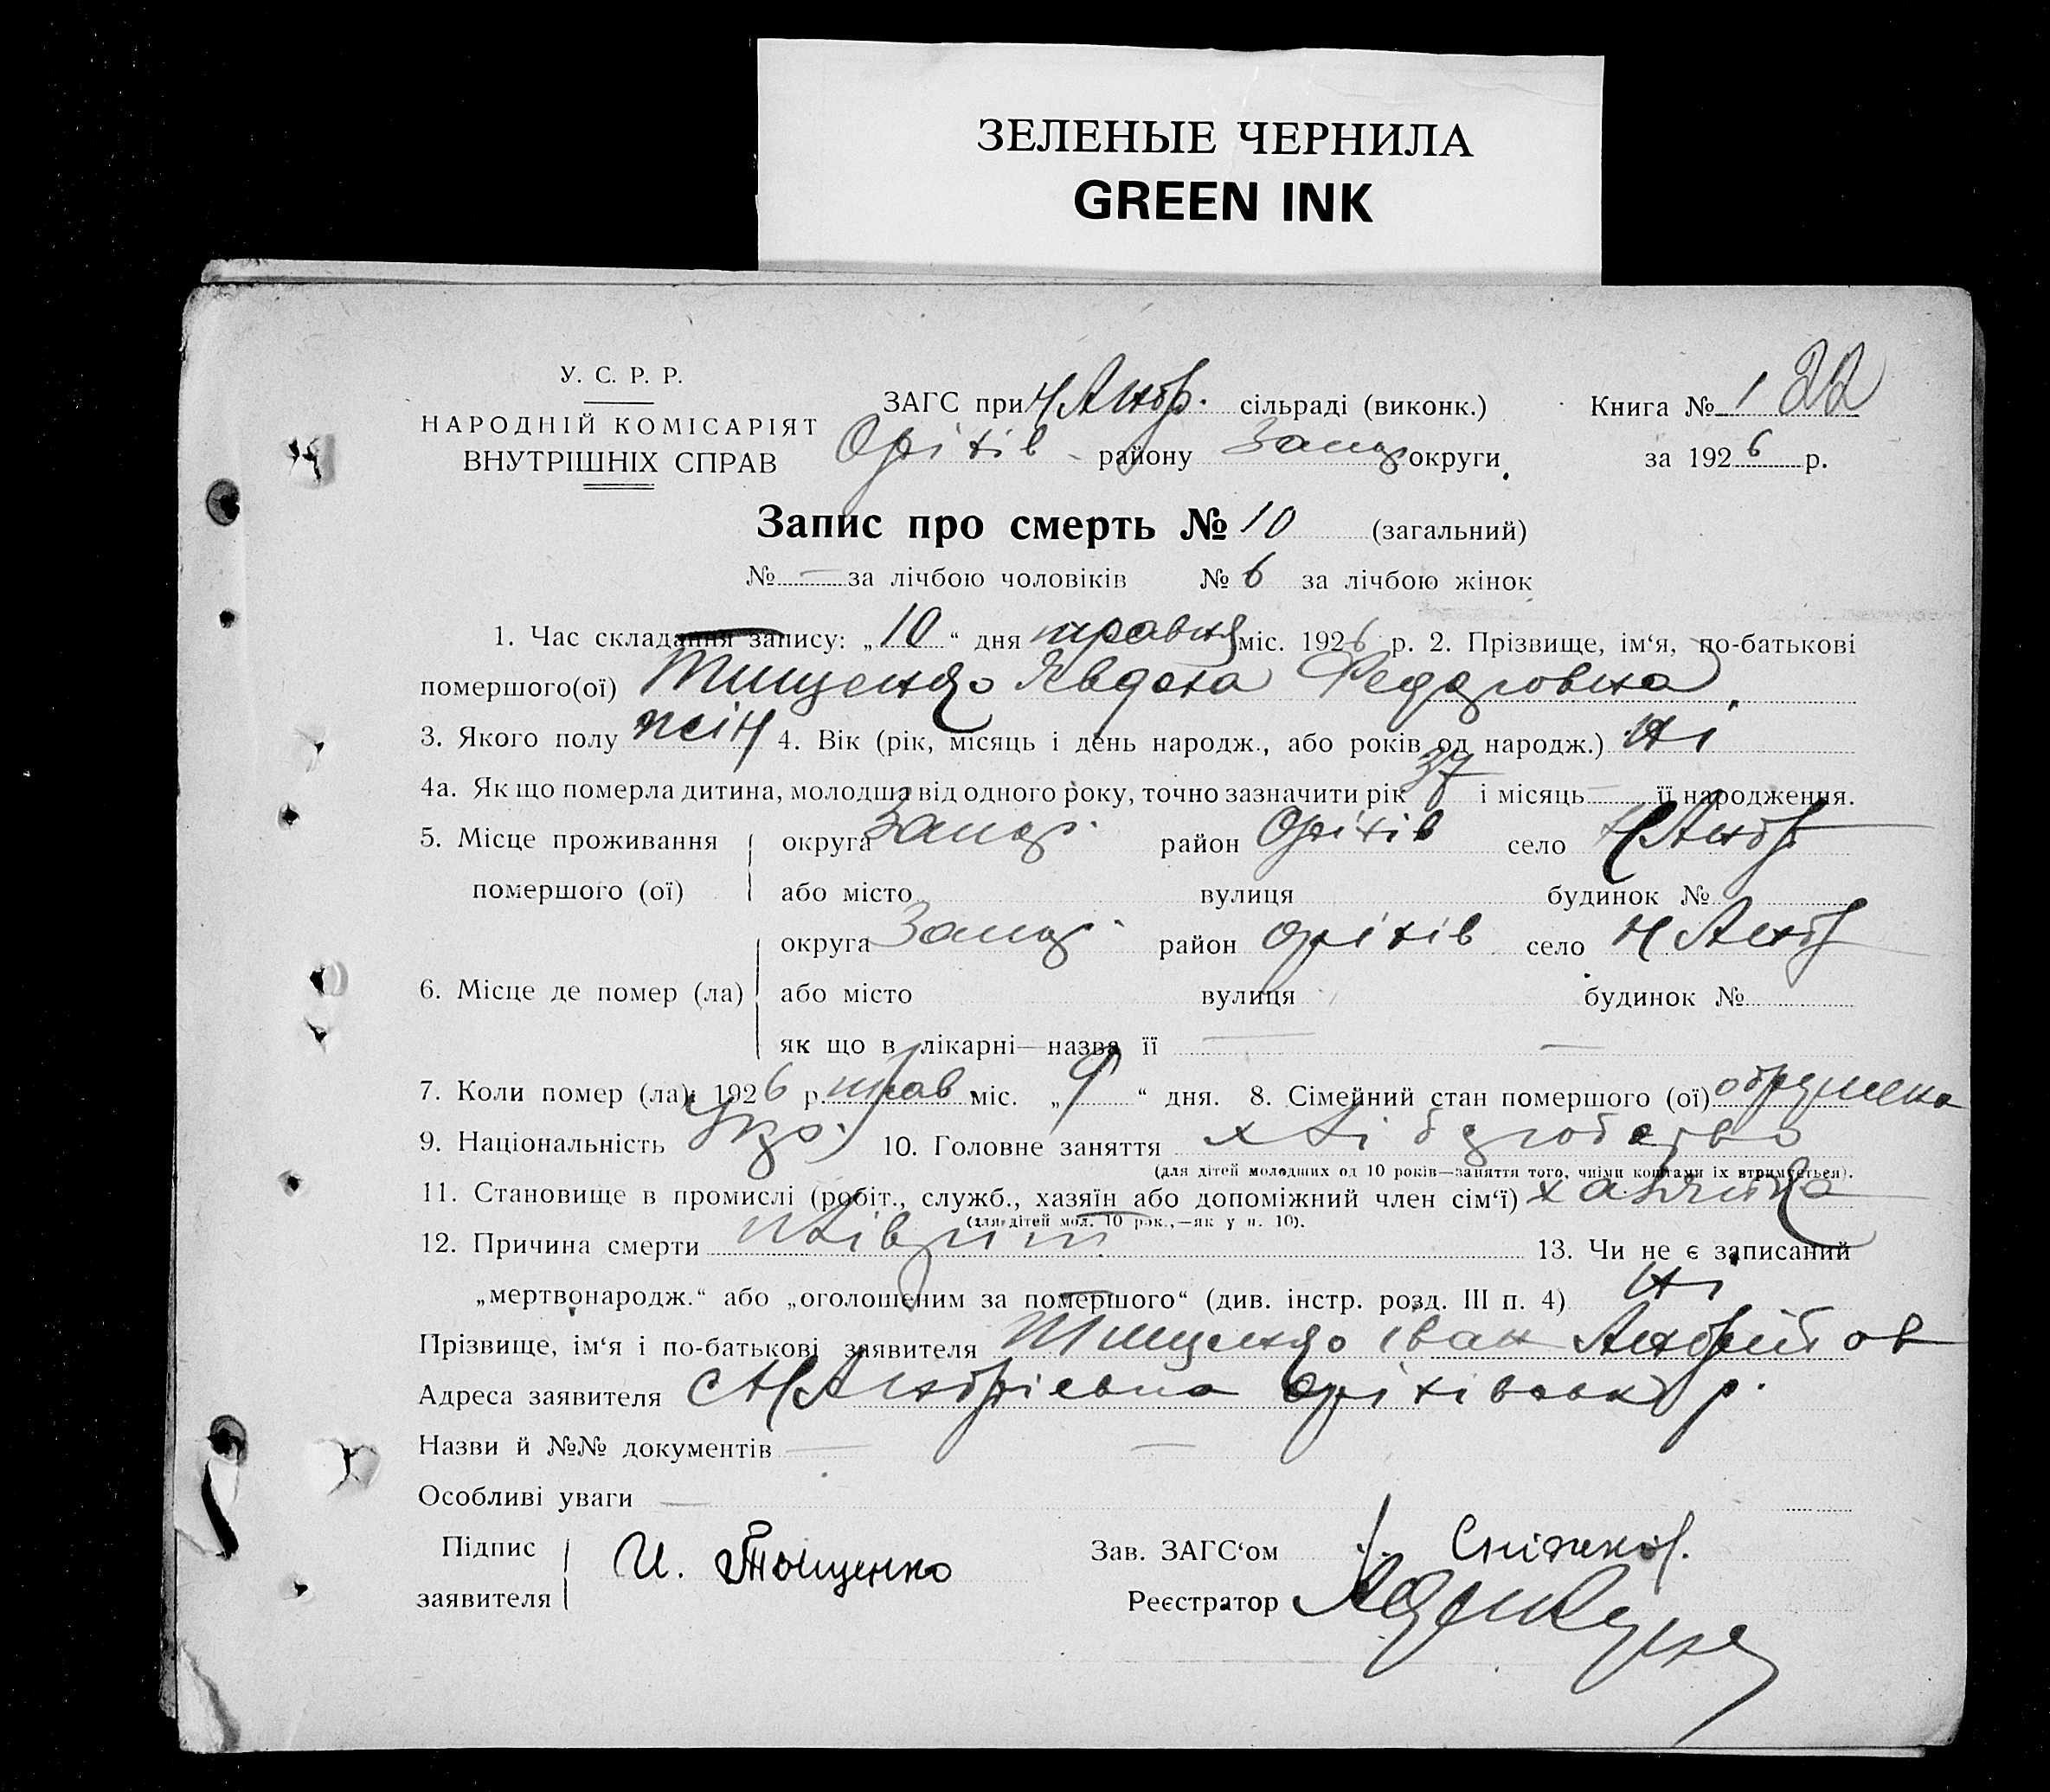 ЗЕЛЕНЫЕ ЧЕРНИЛА
GREEN INK
У. С. Р. Р.
НАРОДНІЙ КОМІСАРІЯТ
ВНУТРІШНІХ СПРАВ
ЗАГС при Н Андр. сільраді (виконк.)
Оріхів району Запор округи
Книга № 1 22
за 1926 р.
Запис про смерть № 10 (загальний)
№ — за лічбою чоловіків № 6 за лічбою жінок
1. Час складання запису: „10“ дня травня міс. 1926 р. 2. Прізвище, ім‘я, по-батькові
помершого(ої) Тищенко Явдоха Федоровна
3. Якого полу жін 4. Вік (рік, місяць і день народж., або років од народж.) ні
4а. Як що померла дитина, молодша від одного року, точно зазначити рік 37 і місяць — її народження.
5. Місце проживання округа Запор. район Оріхів село Н Андр
помершого (ої) або місто вулиця будинок №
округа Запор. район Оріхів село Н Андр
6. Місце де помер (ла) або місто вулиця будинок №
як що в лікарні—назва її — —
7. Коли помер (ла): 1926 р. трав міс. „9“ дня. 8. Сімейний стан помершого (ої)
9. Національність Укр. 10. Головне заняття хліборобство
(для дітей молодших од 10 років—заняття того, чиїми коштами їх втримується).
11. Становище в промислі (робіт., служб., хазяїн або допоміжний член сім‘ї) хазяйка
(для дітей мол. 10 рок.,—як у п. 10).
12. Причина смерти плівріт 13. Чи не є записаний
„мертвонародж.“ або „оголошеним за помершого“ (див. інстр. розд. III п. 4) ні
Прізвище, ім‘я і по-батькові заявителя Тищенко Іван Андрійов
Адреса заявителя с Н Андрієвка Оріхівськ р.
Назви й №№ документів — —
Особливі уваги —
Підпис заявителя И. Тыщенко
Зав. ЗАГС‘ом
Реєстратор